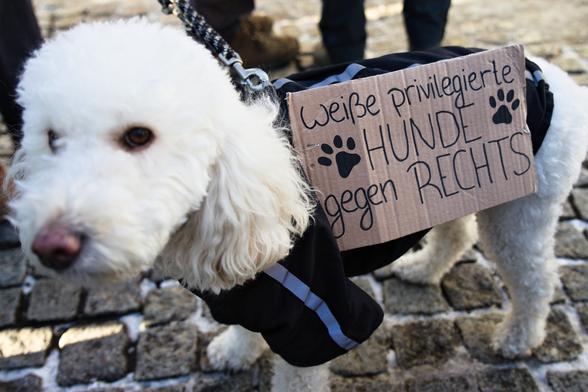 weiße privilegierte
HUNDE
gegen RECHTS